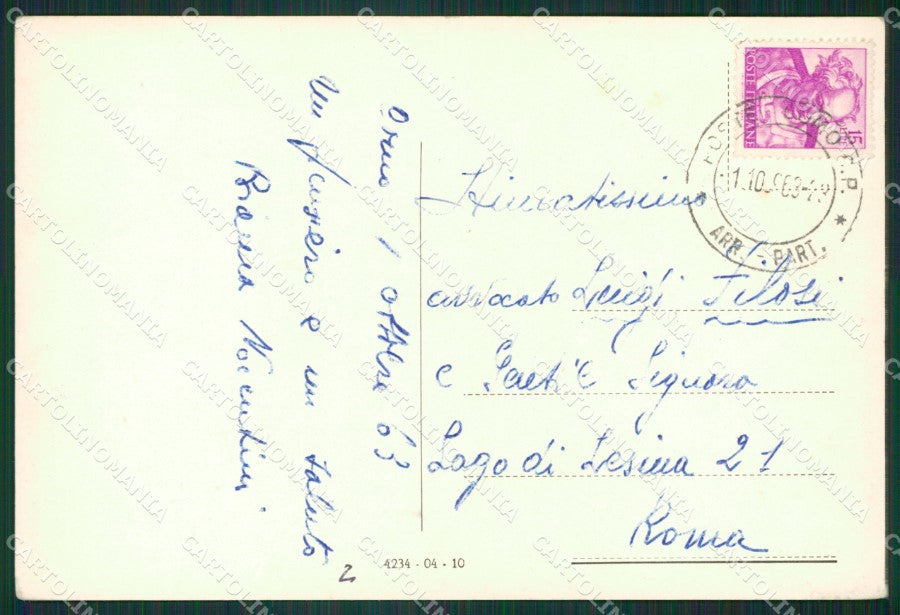 1 ottobre 63
Un pensiero e un saluto
Nocentini
Stimatissimo
avvocato Luigi Filosi
e Gent. Signora
Lago di Lesina 21
Roma
POSTE ITALIANE
15
1.10.1963
ARR. - PART.
4234 - 04 - 10
2
CARTOLINOMANIA